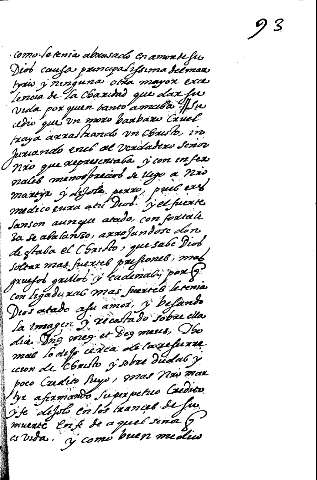 93
como lo tenia abrasado en amor de su
Dios causa principalissima del mar
tyrio y ninguna otra mayor exce
lencia de la Charidad que dar su
vida por quien tanto amaba. Su
cedio que un moro barbaro cruel
traya arrastrando un Christo, in
juriando en el al verdadero señor
nro que representaba, y con infer
nales menosprecios se llego a nro
martyr y dijole, perro, pues eres
medico cura a tu Dios. y el fuerte
Sanson aunque atado, con fortale
za se abalanzo, arrojandose don
de staba el Christo, que sabe Dios
soltar mas fuertes prisiones, mas
gruesos grillos y cadenas, por q
con ligaduras mas fuertes le tenia
Dios atado a su amor, y besando
la imagen y recostado sobre ella
dice Dns meus et Deus meus, Tho
mas lo dijo cerca de la resurre
ccion de Christo y sobre dudas y
poco credito suyo, mas nro mar
tyr afirmando su perpetuo credito
y fe dijolo en los trances de su
muerte en fe de aquel señor q
es vida. y como buen medico